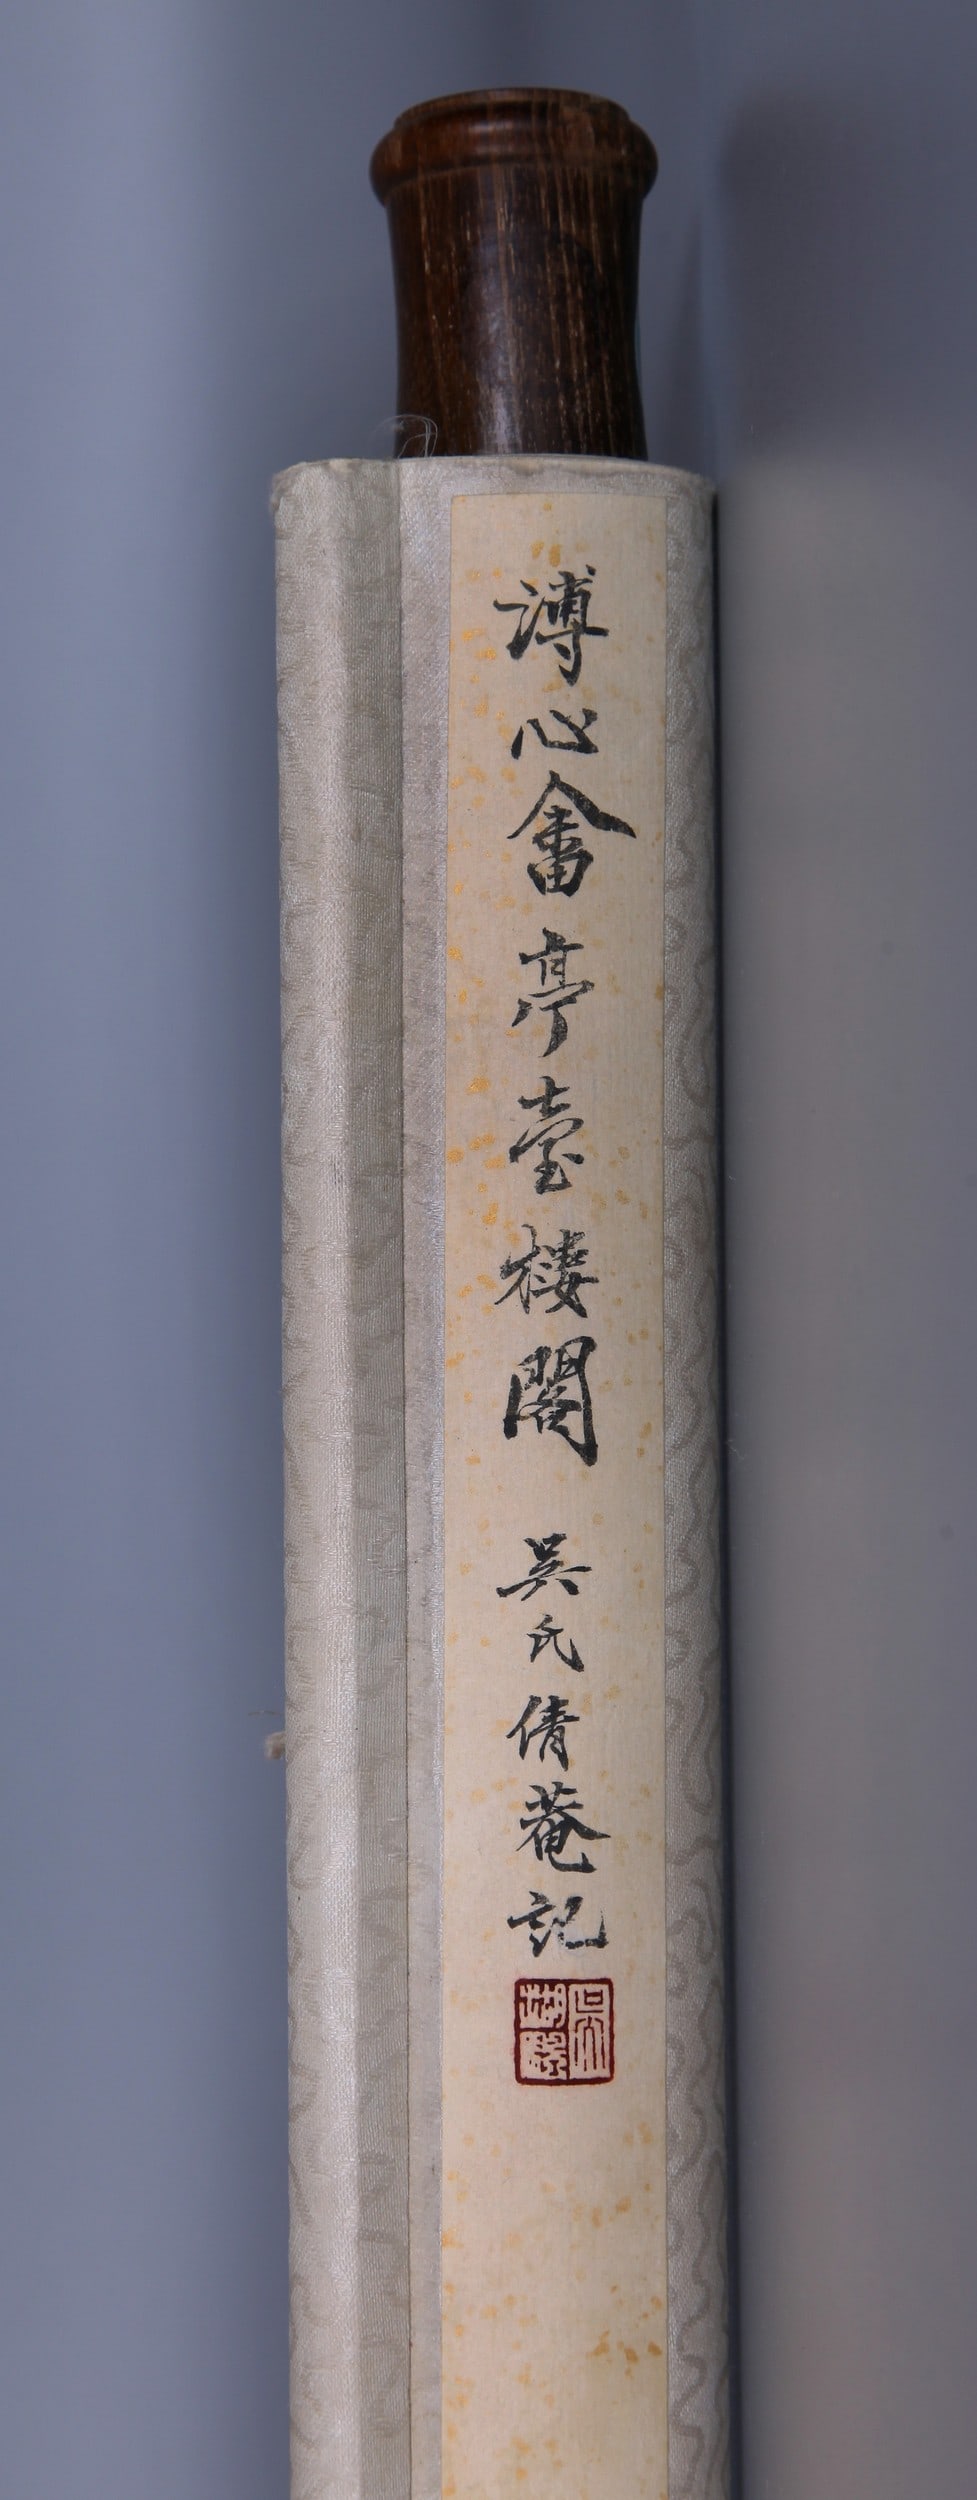 溥心畬亭臺樓閣 吳氏倩菴記